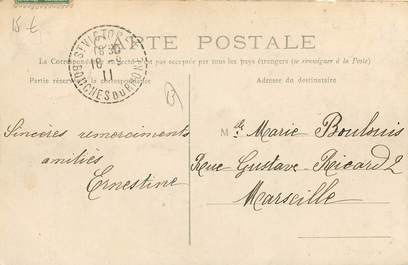 15 €
CARTE POSTALE
La Correspondance au recto n'est pas acceptée par tous les pays étrangers (se renseigner à la Poste)
Partie réservée à la correspondance
Adresse du destinataire
ST VICTORET
18 30
18 -9
11
BOUCHES DU RHONE
Sincères remerciments
amitiés
Ernestine
Mlle Marie Boulouis
Rue Gustave-Ricard 2
Marseille